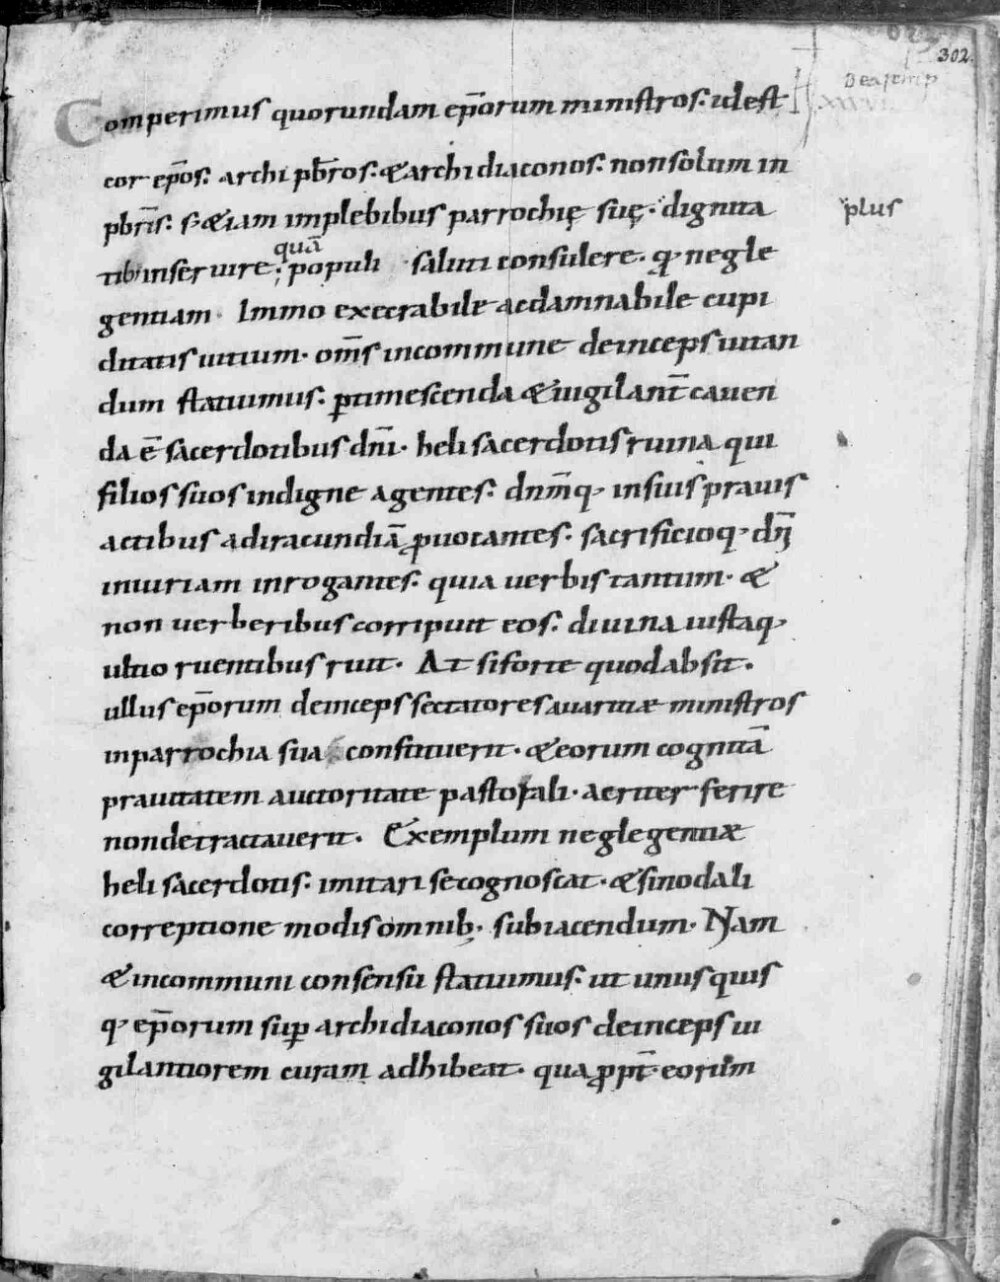 302
Comperimus quorundam ep̄orum ministros. idest
cor ep̄os. archi pb̄ros. & archidiaconos. non solum in
pb̄ris. s; & iam in plebibus parrochię suę. dignita
plus
tib; inseruire. quā
populi saluti consulere. q; negle
gentiam. Immo execrabile ac damnabile cupi
ditatis uitium. om̄s in commune deinceps uitan
dum statuimus. ꝑtimescenda & uigilant̄ cauen
da ē sacerdotibus dn̄i. heli sacerdotis ruina qui
filios suos indigne agentes. dn̄mq; in suis prauis
actibus ad iracundiā ꝓuocantes. sacrificioq; dn̄i
iniuriam inrogantes. quia uerbis tantum. &
non uerberibus corripuit eos. diuina iustaq;
ultio ruentibus ruit. At si forte quod absit.
ullus ep̄orum deinceps sectatores auaritiæ ministros
in parrochia sua constituerit. & eorum cognitā
prauitatem auctoritate pastorali. acriter ferire
non detractauerit. Exemplum neglegentiæ
heli sacerdotis. imitari se cognoscat. & sinodali
correptione modis omnib;. subiacendum. Nam
& in communi consensu statuimus. ut unus quis
q; ep̄orum suꝑ archidiaconos suos deinceps ui
gilantiorem curam adhibeat. qua ꝓpt̄ eorum